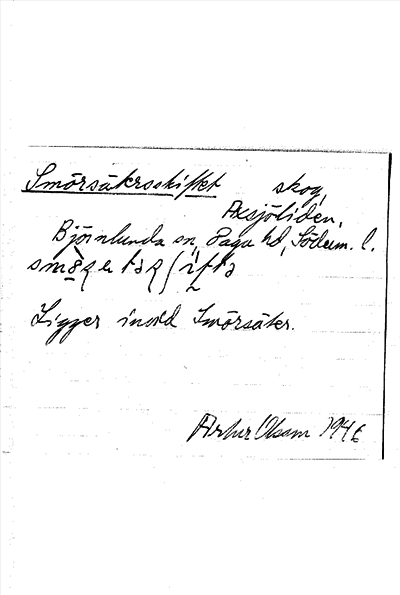 Smörsäkersskiftet skog,
Axsjöliden,
Björnlunda sn, Daga hd, Söderm. l.
Ligger invid Smörsäker.
Artur Olsson 1946